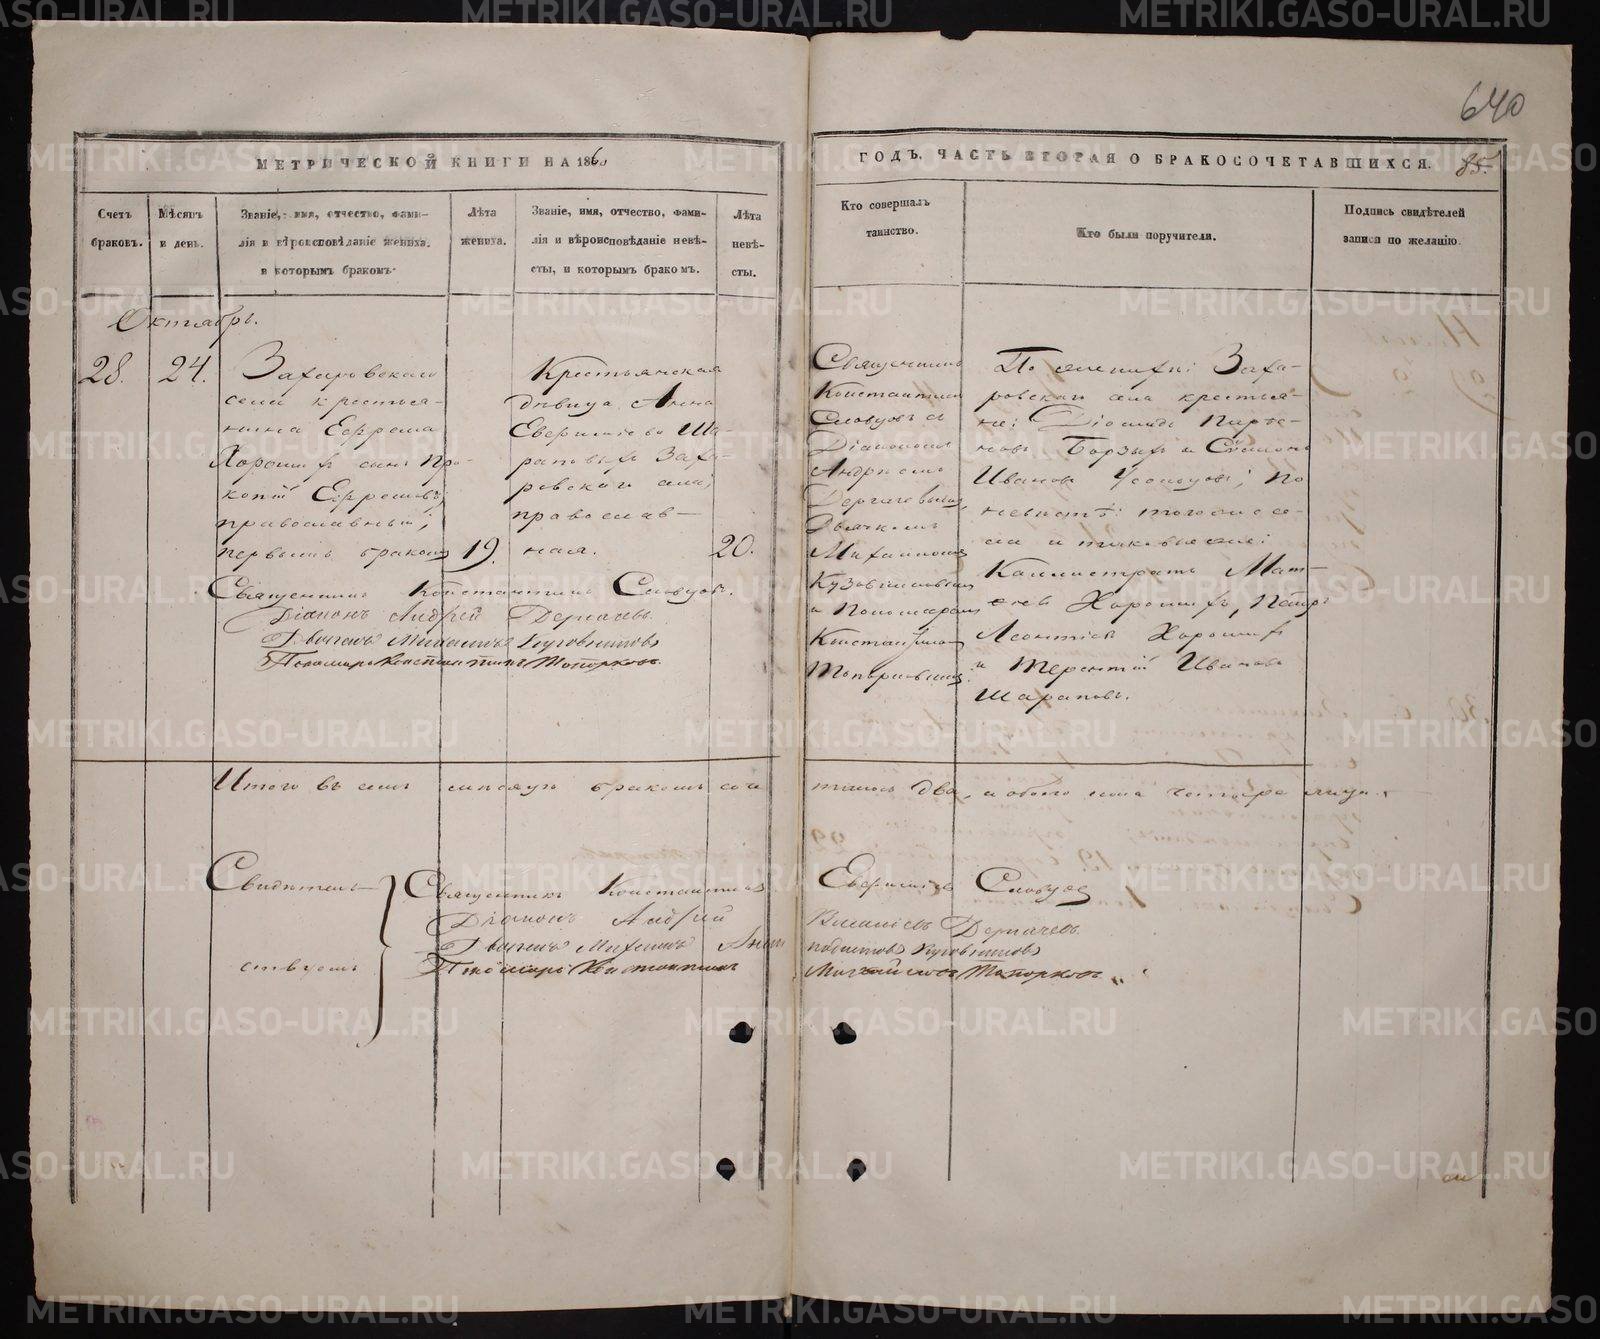 640
МЕТРИЧЕСКОЙ КНИГИ НА 1860
ГОДЪ, ЧАСТЬ ВТОРАЯ О БРАКОСОЧЕТАВШИХСЯ.
85.
Счетъ
браковъ.
Мѣсяцъ
и день.
Званіе, имя, отчество, фами-
лія и вѣроисповѣданіе жениха,
и которымъ бракомъ
Лѣта
жениха.
Званіе, имя, отчество, фами-
лія и вѣроисповѣданіе невѣ-
сты, и которымъ бракомъ.
Лѣта
невѣ-
сты.
Кто совершалъ
таинство.
Кто были поручители.
Подпись свидѣтелей
записи по желанію.
Октябрь.
28.
24.
Захаровскаго
села крестья-
нина Ефрема
Хорошихъ сынъ Про-
копій Ефремовъ,
православный;
первымъ бракомъ
19.
Крестьянская
дѣвица Анна
Ша-
раповыхъ Заха-
ровскаго села,
православ-
ная.
20.
Священникъ
Константинъ
Словцовъ съ
Діакономъ
Андреемъ
Дергачевымъ,
Дьячкомъ
Михаиломъ
и Пономаремъ
Константиномъ
Топорковымъ.
По женихѣ: Заха-
ровскаго села крестья-
не: Діомидъ
Борзыхъ и
Ивановъ по
невѣстѣ: тогоже се-
ла и таковыеже:
Каллистратъ Мат-
ѳеевъ Хорошихъ, Петръ
Леонтіевъ Хорошихъ
и Терентій Ивановъ
Шараповъ.
Священникъ Константинъ Словцовъ.
Діаконъ Андрей Дергачевъ
Дьячекъ Михаилъ
Пономарь Константинъ Топорковъ.
Итого въ семъ мѣсяцѣ бракомъ соче
талось два, а обоего пола четыре лица.
Свидѣтель-
ствуемъ
Священникъ Константинъ Словцовъ
Діаконъ Андрей Дергачевъ
Дьячекъ Михаилъ
Пономарь Константинъ Топорковъ
METRIKI.GASO-URAL.RU